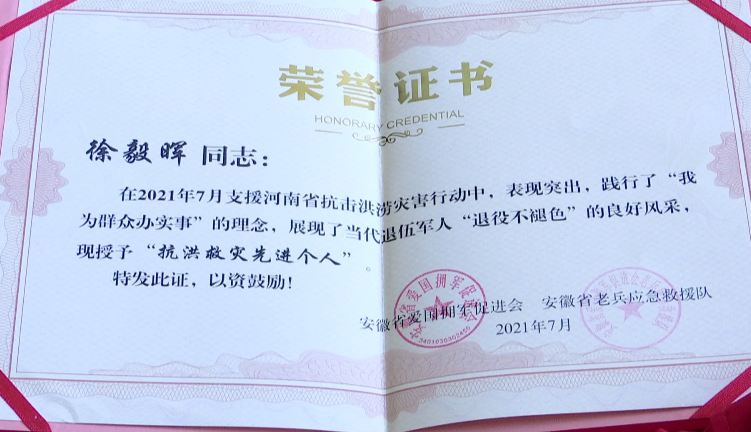 荣誉证书
HONORARY CREDENTIAL
徐毅晖 同志：
在2021年7月支援河南省抗击洪涝灾害行动中，表现突出，践行了“我
为群众办实事”的理念，展现了当代退伍军人“退役不褪色”的良好风采，
现授予“抗洪救灾先进个人”。
特发此证，以资鼓励！
安徽省爱国拥军促进会 安徽省老兵应急救援队
2021年7月